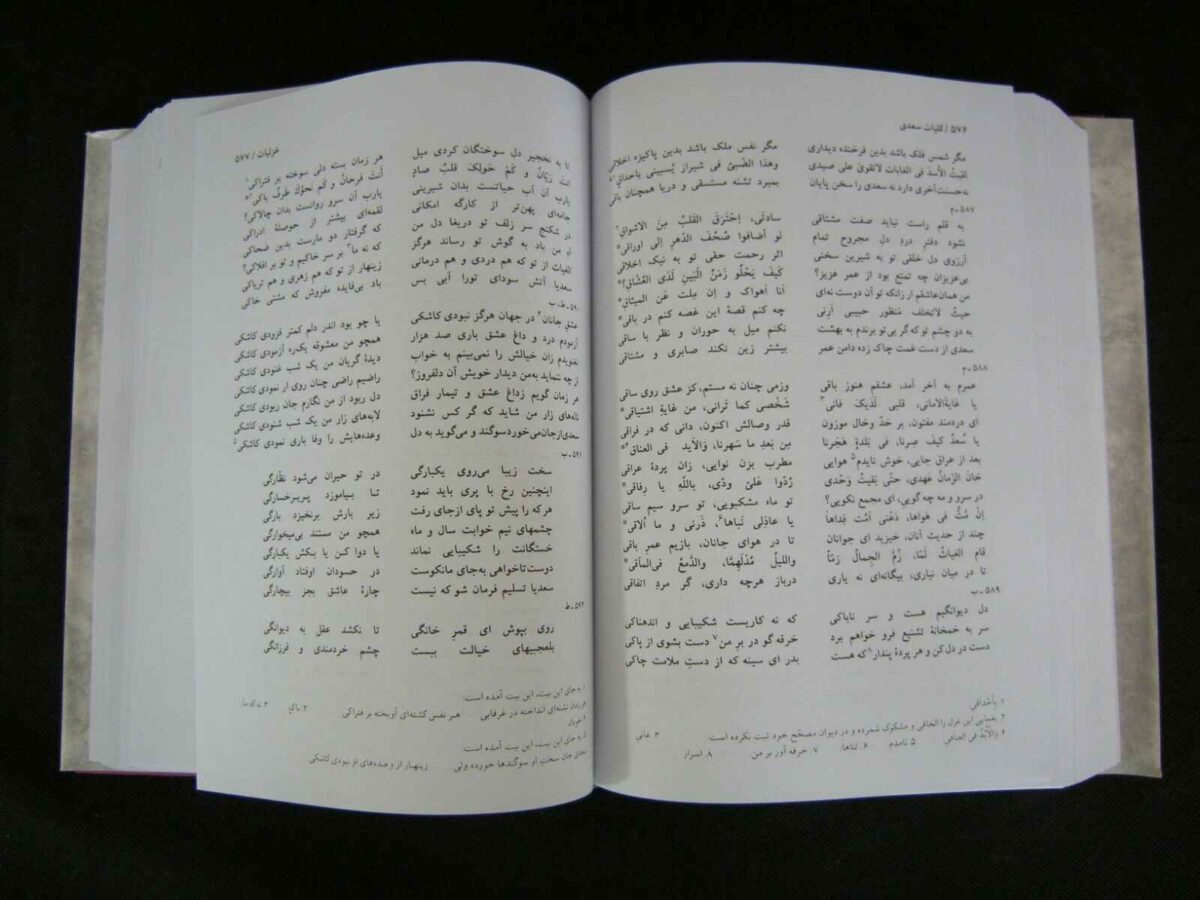 ۵۷۶ / کلیات سعدی
مگر شمس فلک باشد بدین فرخنده دیداری مگر نفس ملک باشد بدین پاکیزه اخلاقی
لقیتُ الأُسدَ فی الغابات لاتقویٰ علی صیدی وهذا الظَّبیُ فی شیراز یَسبینی باحداقٍ۱
نه‌حسنت‌آخری دارد نه‌سعدی را سخن پایان بمیرد تشنه مستسقی و دریا همچنان باقی
۵۸۷ـ م
به قلم راست نیاید صفت مشتاقی سادتی، اِحتَرَقَ القَلبُ مِنَ الاشواقِ۲
نشود دفترِ دردِ دلِ مجروح تمام لو أضافوا صُحُفَ الدَّهرِ إلی اوراقی
آرزوی دل خلقی تو به شیرین سخنی اثر رحمت حقی تو به نیک اخلاقی
بی‌عزیزان چه تمتع بود از عمر عزیز؟ کَیفَ یَحلُو زَمَنُ البَینِ لَدَی العُشّاقِ؟
من همان عاشقم ار زانکه تو آن دوست نه‌ای أنا أهواک و اِن مِلت عَن المیثاقِ
حیثُ لاتخلف مَنظور حبیبی أرِنی چه کنم قصهٔ این غصه کنم در باقی
به دو چشم تو که گر بی‌تو برندم به بهشت نکنم میل به حوران و نظر با ساقی
سعدی از دست غمت چاک زده دامن عمر بیشتر زین نکند صابری و مشتاقی
۵۸۸ـ م
عمرم به آخر آمد، عشقم هنوز باقی وزمی چنان نه مستم، کز عشق روی ساقی
یا غایةَ‌الامانی، قلبی لَدَیکَ فانی۳ شَخصی کما ترانی، من غایةِ اشتیاقی
ای دردمند مفتون، بر خدّ وخال موزون قدر وصالش اکنون، دانی که در فراقی
یا سَعدُ کیفَ صِرنا، فی بَلدةٍ هَجَرنا مِن بَعدِ ما سَهِرنا، وَالأید فی العناق۴
بعد از عراق جایی، خوش نایدم۵ هوایی مطرب بزن نوایی، زان پردهٔ عراقی
خانَ الزَّمانُ عَهدی، حتّی بَقیتُ وَحدی رُدّوا عَلَیَّ ودّی، باللّهِ یا رِفاقی
در سرو و مه چه گویی، ای مجمع نکویی؟ تو ماه مشکبویی، تو سرو سیم ساقی
اِنْ مُتُّ فی هَواها، دَعْنی أمُت فِداها یا عاذِلی نَباها۶، ذَرنی و ما اُلاقی
چند از حدیث آنان، خیزید ای جوانان تا در هوای جانان، بازیم عمرِ باقی
قام الغیاثُ لَمّا، زُمَّ الجِمالُ زَمّاً واللیلُ مُدلَهِمّا، والدَّمعُ فی‌المآقی
تا در میان نیاری، بیگانه‌ای نه یاری درباز هرچه داری، گر مردِ اتفاقی
۵۸۹ـ ب
دل دیوانگیم هست و سر ناباکی که نه کاریست شکیبایی و اندهناکی
سر به خمخانهٔ تشنیع فرو خواهم برد خرقه گو در برِ من۷ دست بشوی از پاکی
دست در دل‌کن و هر پردهٔ پندار۸ که هست بدر ای سینه که از دستِ ملامت چاکی
۱. بأحْداقی
۲. یغمایی این غزل را الحاقی و مشکوک شمرده و در دیوان مصحّح خود ثبت نکرده است. ۳. عانی
۴. والأیْدُ فی العناقی ۵. نامدم. ۶. ثناها. ۷. خرقه آور بر من ۸. اسرار
غزلیات / ۵۷۷
تا به نخجیر دل سوختگان کردی میل هر زمان بسته دلی سوخته بر فتراکی۱
انتَ رَیّانُ و کَمْ حَولَکَ قلبٌ صادٍ أنتَ فَرحانُ و کَم نَحوَکَ طَرفُ باکی۲
یارب آن آب حیاتست بدان شیرینی یارب آن سرو روانست بدان چالاکی؟
جامه‌ای پهن‌تر از کارگه امکانی لقمه‌ای بیشتر از حوصلهٔ ادراکی
در شکنج سر زلف تو دریغا دل من که گرفتار دو مارست بدین ضحاکی
آهِ من باد به گوش تو رساند هرگز که نه ما۳ بر سر خاکیم و تو بر افلاکی؟
الغیاث از تو که هم دردی و هم درمانی زینهار از تو که هم زهری و هم تریاکی
سعدیا آتش سودای تورا آبی بس باد بی‌فایده مفروش که مشتی خاکی
۵۹۰ـ ط، ب
عشق جانان۴ در جهان هرگز نبودی کاشکی یا چو بود اندر دلم کمتر فزودی کاشکی
آزمودم درد و داغ عشق باری صد هزار همچو من معشوقه یک‌ره آزمودی کاشکی
نغنویدم زان خیالش را نمی‌بینم به خواب دیدهٔ گریان من یک شب غنودی کاشکی
از چه ننماید به‌من دیدار خویش آن دلفروز؟ راضیم راضی چنان روی ار نمودی کاشکی
هر زمان گویم زداغ عشق و تیمار فراق دل ربود از من نگارم جان ربودی کاشکی
ناله‌های زار من شاید که گر کس نشنود لابه‌های زار من یک شب شنودی کاشکی
سعدی ازجان می‌خورد سوگند و می‌گوید به دل وعده‌هایش را وفا باری نمودی کاشکی۵
۵۹۱ـ ب
سخت زیبا می‌روی یکبارگی در تو حیران می‌شود نظّارگی
اینچنین رخ با پری باید نمود تـا بیاموزد پری‌رخسارگی
هرکه را پیش تو پای ازجای رفت زیر بارش برنخیزد بارگی
چشمهای نیم خوابت سال و ماه همچو من مستند بی‌میخوارگی
خستگانت را شکیبایی نماند یا دوا کـن یا بـکش یکبارگی
دوست‌تاخواهی به‌جای مانکوست در حسودان اوفتاد آوارگی
سعدیا تسلیم فرمان شو که نیست چارهٔ عاشق بجز بیچارگی
۵۹۲ـ ط
روی بپوش ای قمرِ خانگی تا نکشد عقل به دیوانگی
بلعجبیهای خیالت ببست چشم خردمندی و فرزانگی
۱. به جای این بیت، این بیت آمده است:
هر زمان تشنه‌ای انداخته در غرقابی هـر نفس کشته‌ای آویخته بر فتراکی ۲. باکٍ ۳. نه که ما.
۴. خوبان
۵. به جای این بیت، این بیت آمده است:
سعدی جان سخت او سوگندها خورده ولی زینهار از وعده‌های او نبودی کاشکی